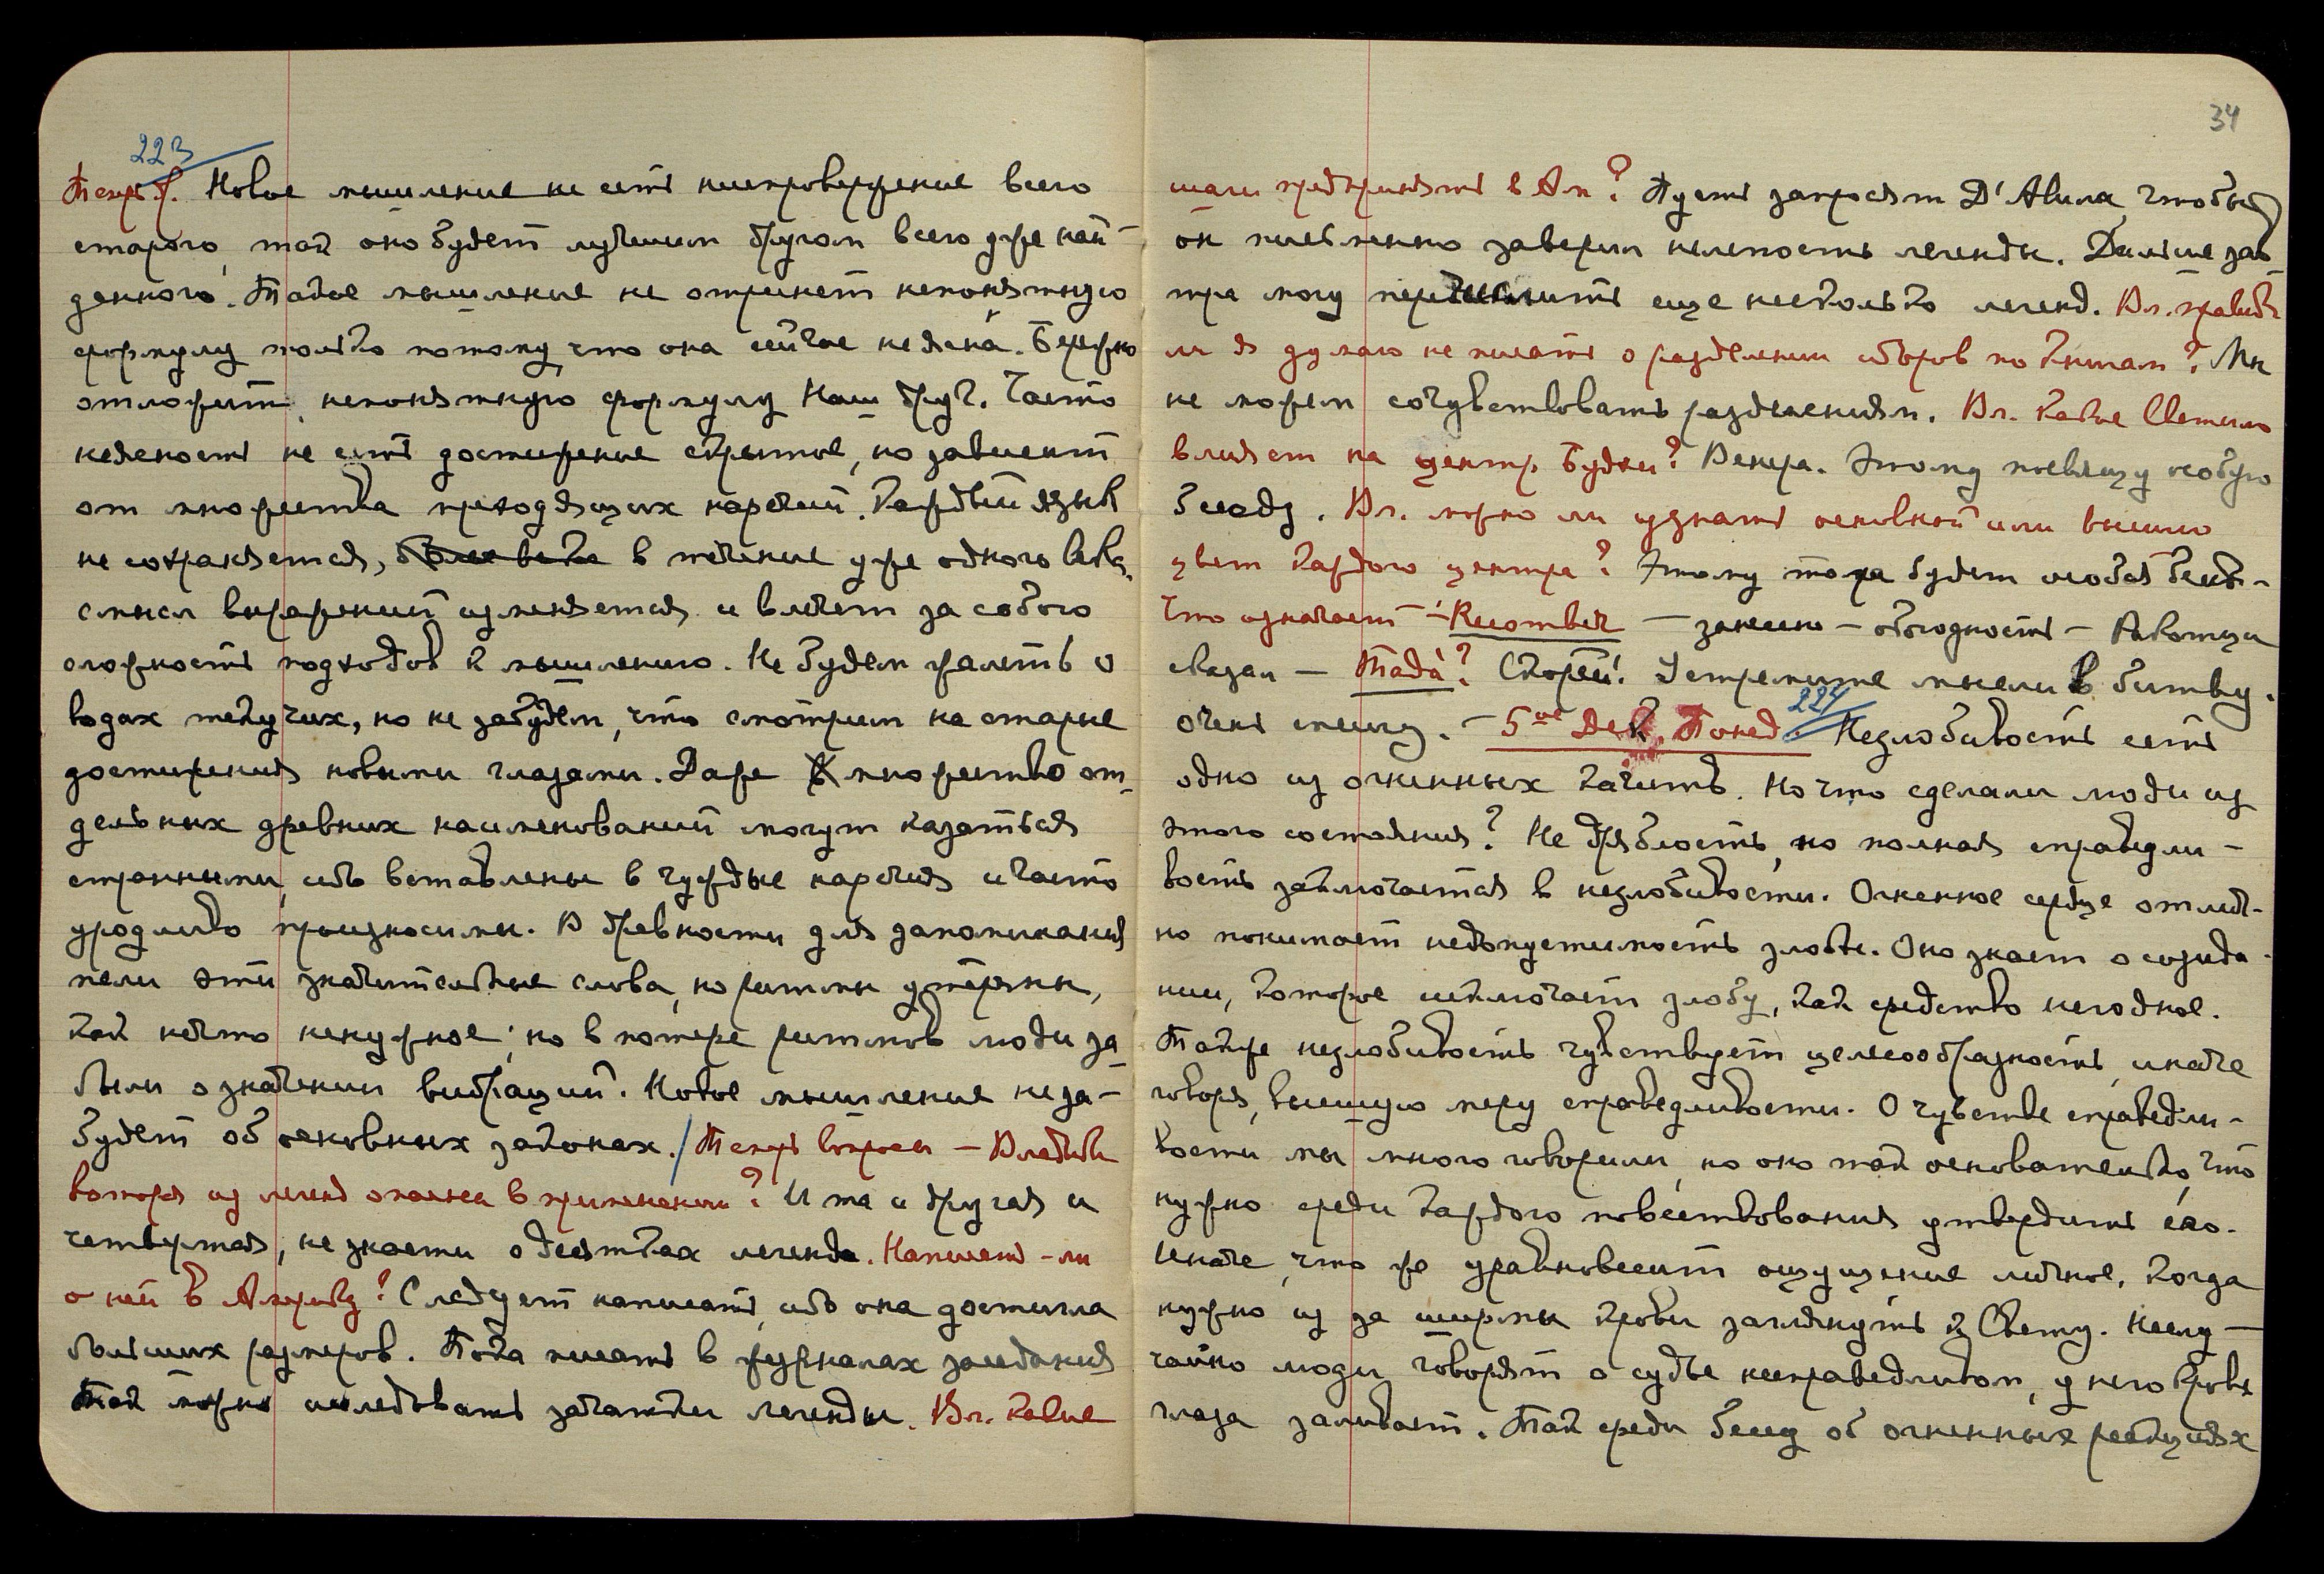 223
Теперь д. Новое мышление не есть ниспровержение всего
старого, так оно будет лучшим другом всего уже най-
денного. Такое мышление не отринет непонятную
формулу только потому, что она сейчас неясна. Бережно
отложит непонятную формулу Наш друг. Часто
неясность не есть достижение скрытое, но зависит
от множества преходящих наречий. Каждый язык
не сохраняется, более века в течение уже одного века,
смысл выражений изменяется и влечет за собою
сложность подходов к мышлению. Не будем жалеть о
водах текучих, но не забудем, что смотрим на старые
достижения новыми глазами. Даже множество от-
дельных древних наименований могут казаться
странными, ибо вставлены в чуждые наречия и часто
уродливо произносимы. В древности для запоминания
пели эти значительные слова, но ритмы утеряны,
как нечто ненужное; но в потере ритмов люди за-
были о значении вибраций. Новое мышление не за-
будет об основных законах. / Теперь вопросы — Владыко
которая из легенд опасна в применении? И та и другая и
четвертая, не знаете о десятках легенд. Написать-ли
о ней в Америку? Следует написать, ибо она достигла
больших размеров. Пока писать в журналах заседания
Так можно исследовать зачатки легенды. Вл. какие
34
шаги предпринять в Ам? Пусть запросят D'Авила, чтобы
он письменно заверил нелепость легенды. Дальше зав-
тра могу перечислить еще несколько легенд. Вл. правиль
ли я думаю не писать о разделении сборов по книгам? Мы
не можем сочувствовать разделениям. Вл. какое Светило
влияет на центр Будхи? Венера. Этому посвящу особую
беседу. Вл. можно ли узнать основной или высший
цвет каждого центра? Этому тоже будет особая беседа.
Что означает — Recombek — записано — обоюдность — Ракоци
сказал — Тада? Скорей! Устремите мысли в битву.
очень спешу. — 5ое Дек. Понед. 224 Незлобивость есть
одно из огненных качеств. Но что сделали люди из
этого состояния? Не дряблость, но полная справедли-
вость заключается в незлобивости. Огненное сердце отлич-
но понимает недопустимость злобы. Оно знает о созида-
нии, которое исключает злобу, как средство негодное.
Также незлобивость чувствует целесообразность, иначе
говоря, высшую меру справедливости. О чувстве справедли-
вости мы много говорили, но оно так основательно, что
нужно среди каждого повествования утвердить его.
Иначе, что же уравновесит ощущение личное, когда
нужно из за ширмы крови заглянуть к Свету. Неслу-
чайно люди говорят о судье несправедливом, у него кровь
глаза заливает. Так среди бесед об огненных реакциях